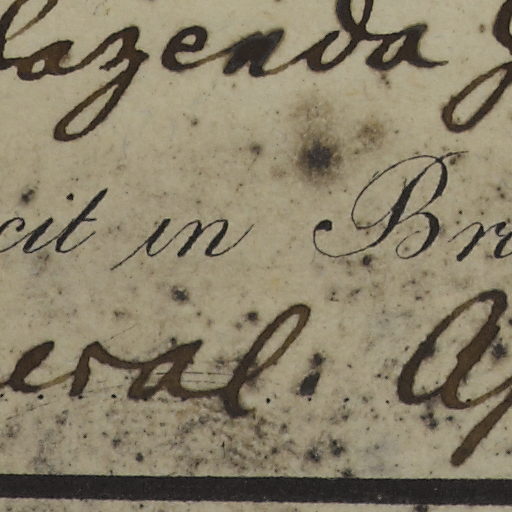 fazenda
cit in Br
eral. Ap